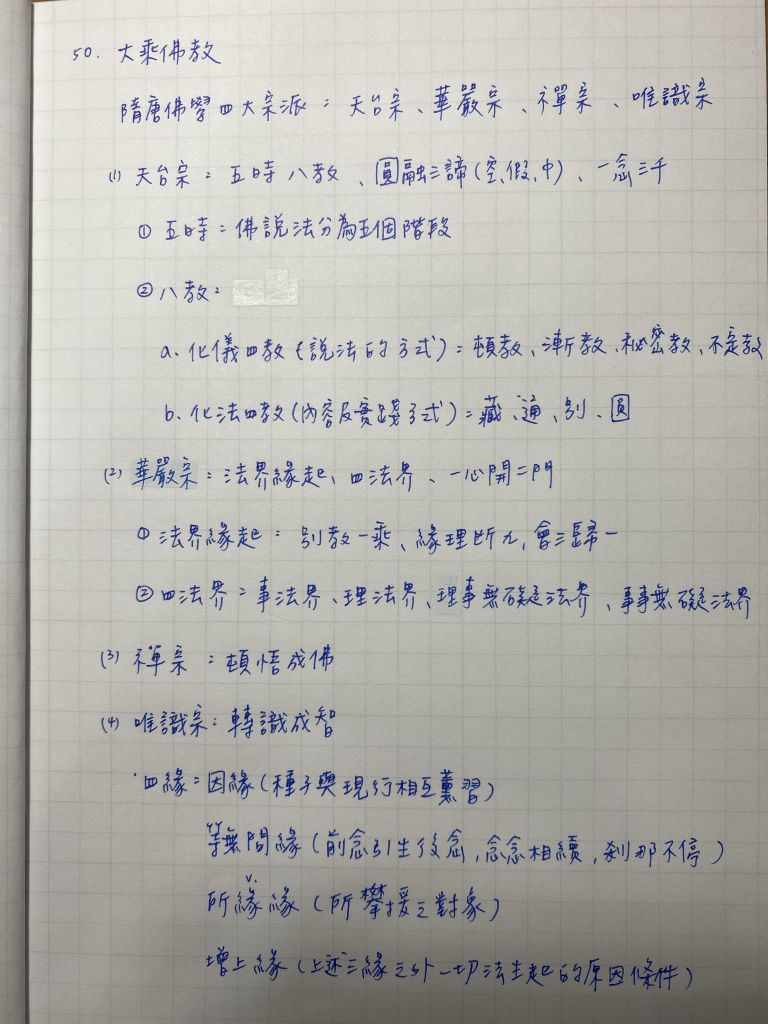 50. 大乘佛教
隋唐佛學四大宗派：天台宗、華嚴宗、禪宗、唯識宗
(1) 天台宗：五時八教、圓融三諦(空、假、中)、一念三千
① 五時：佛說法分為五個階段
② 八教：
a. 化儀四教(說法的方式)：頓教、漸教、秘密教、不定教
b. 化法四教(內容及實踐方式)：藏、通、別、圓
(2) 華嚴宗：法界緣起、四法界、一心開二門
① 法界緣起：別教一乘、緣理斷九，會三歸一
② 四法界：事法界、理法界、理事無礙法界、事事無礙法界
(3) 禪宗：頓悟成佛
(4) 唯識宗：轉識成智
四緣：因緣(種子與現行相互薰習)
等無間緣(前念引生後念，念念相續，剎那不停)
所緣緣(所攀援之對象)
增上緣(上述三緣之外一切法生起的原因條件)